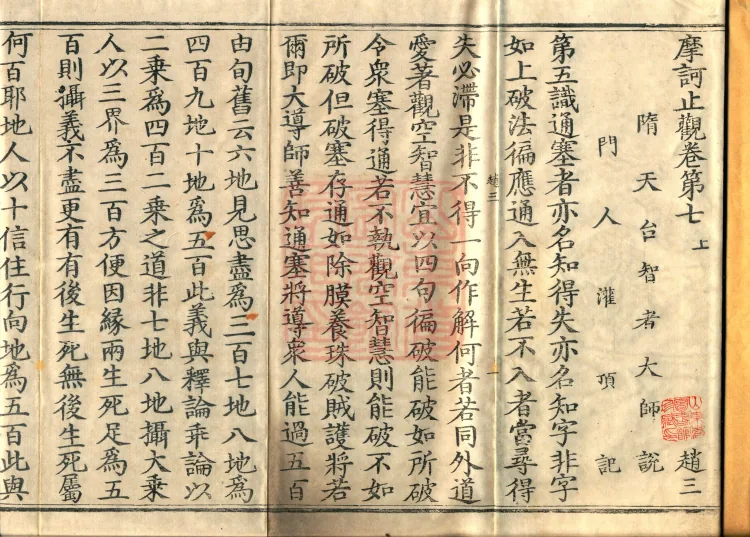 摩訶止觀卷第七上 趙三
隋天台智者大師說
門人灌頂記
第五識通塞者亦名知得失亦名知字非字
如上破法徧應通入無生若不入者當尋得
趙三
失必滯是非不得一向作解何者若同外道
愛著觀空智慧宜以四句徧破能破如所破
令衆塞得通若不執觀空智慧則能破不如
所破但破塞存通如除膜養珠破賊護將若
爾即大導師善知通塞將導衆人能過五百
由旬舊云六地見思盡爲三百七地八地爲
四百九地十地爲五百此義與釋論乖論以
二乘爲四百二乘之道非七地八地攝大乘
人以三界爲三百方便因緣兩生死足爲五
百則攝義不盡更有有後生死無後生死屬
何百耶地人以十信住行向地爲五百此與